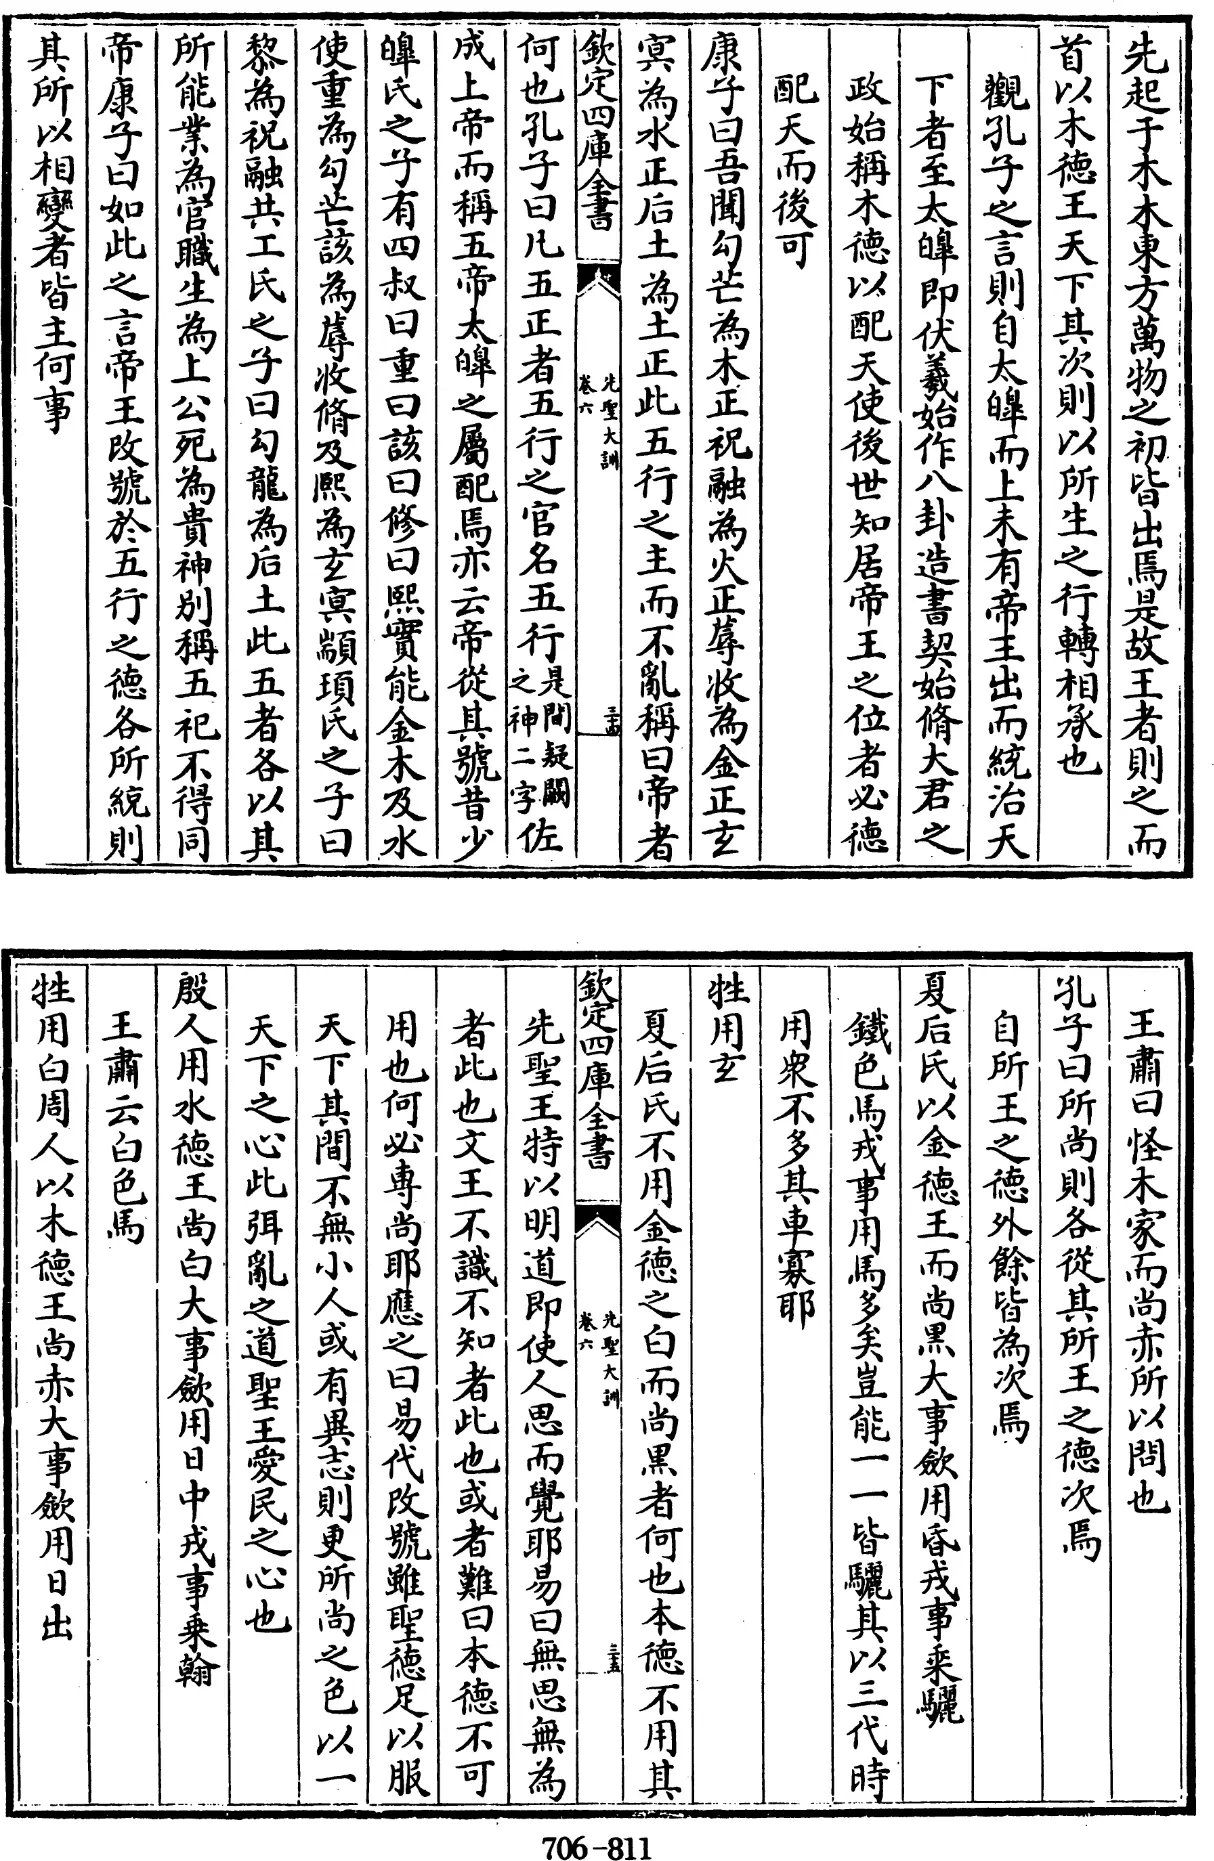 先起于木木東方萬物之初皆出焉是故王者則之而
首以木德王天下其次則以所生之行轉相承也
觀孔子之言則自太皥而上未有帝王出而統治天
下者至太皥即伏羲始作八卦造書契始脩大君之
政始稱木德以配天使後世知居帝王之位者必德
配天而後可
康子曰吾聞勾芒為木正祝融為火正蓐收為金正玄
冥為水正后土為土正此五行之主而不亂稱曰帝者
欽定四庫全書
先聖大訓
卷六
三十四
何也孔子曰凡五正者五行之官名五行是間疑闕之神二字佐
成上帝而稱五帝太皥之屬配焉亦云帝從其號昔少
皥氏之子有四叔曰重曰該曰修曰熙實能金木及水
使重為勾芒該為蓐收脩及熙為玄冥顓頊氏之子曰
黎為祝融共工氏之子曰勾龍為后土此五者各以其
所能業為官職生為上公死為貴神別稱五祀不得同
帝康子曰如此之言帝王改號於五行之德各所統則
其所以相變者皆主何事
王肅曰怪木家而尚赤所以問也
孔子曰所尚則各從其所王之德次焉
自所王之德外餘皆為次焉
夏后氏以金德王而尚黑大事歛用昏戎事乘驪
鐵色馬戎事用馬多矣豈能一一皆驪其以三代時
用衆不多其車寡耶
牲用玄
夏后氏不用金德之白而尚黑者何也本德不用其
欽定四庫全書
先聖大訓
卷六
三十五
先聖王特以明道即使人思而覺耶易曰無思無為
者此也文王不識不知者此也或者難曰本德不可
用也何必專尚耶應之曰易代改號雖聖德足以服
天下其間不無小人或有異志則更所尚之色以一
天下之心此弭亂之道聖王愛民之心也
殷人用水德王尚白大事歛用日中戎事乘翰
王肅云白色馬
牲用白周人以木德王尚赤大事歛用日出
706-811